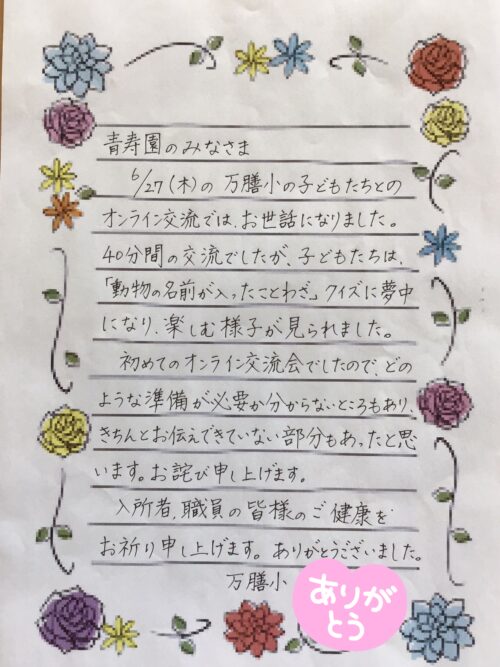 青寿園のみなさま
6/27(木)の 万膳小の子どもたちとの
オンライン交流では、お世話になりました。
40分間の交流でしたが、子どもたちは、
「動物の名前が入ったことわざ」クイズに夢中
になり、楽しむ様子が見られました。
初めてのオンライン交流会でしたので、どの
ような準備が必要か分からないところもあり、
きちんとお伝えできていない部分もあったと思
います。お詫び申し上げます。
入所者、職員の皆様のご健康を
お祈り申し上げます。ありがとうございました。
万膳小
ありが
とう